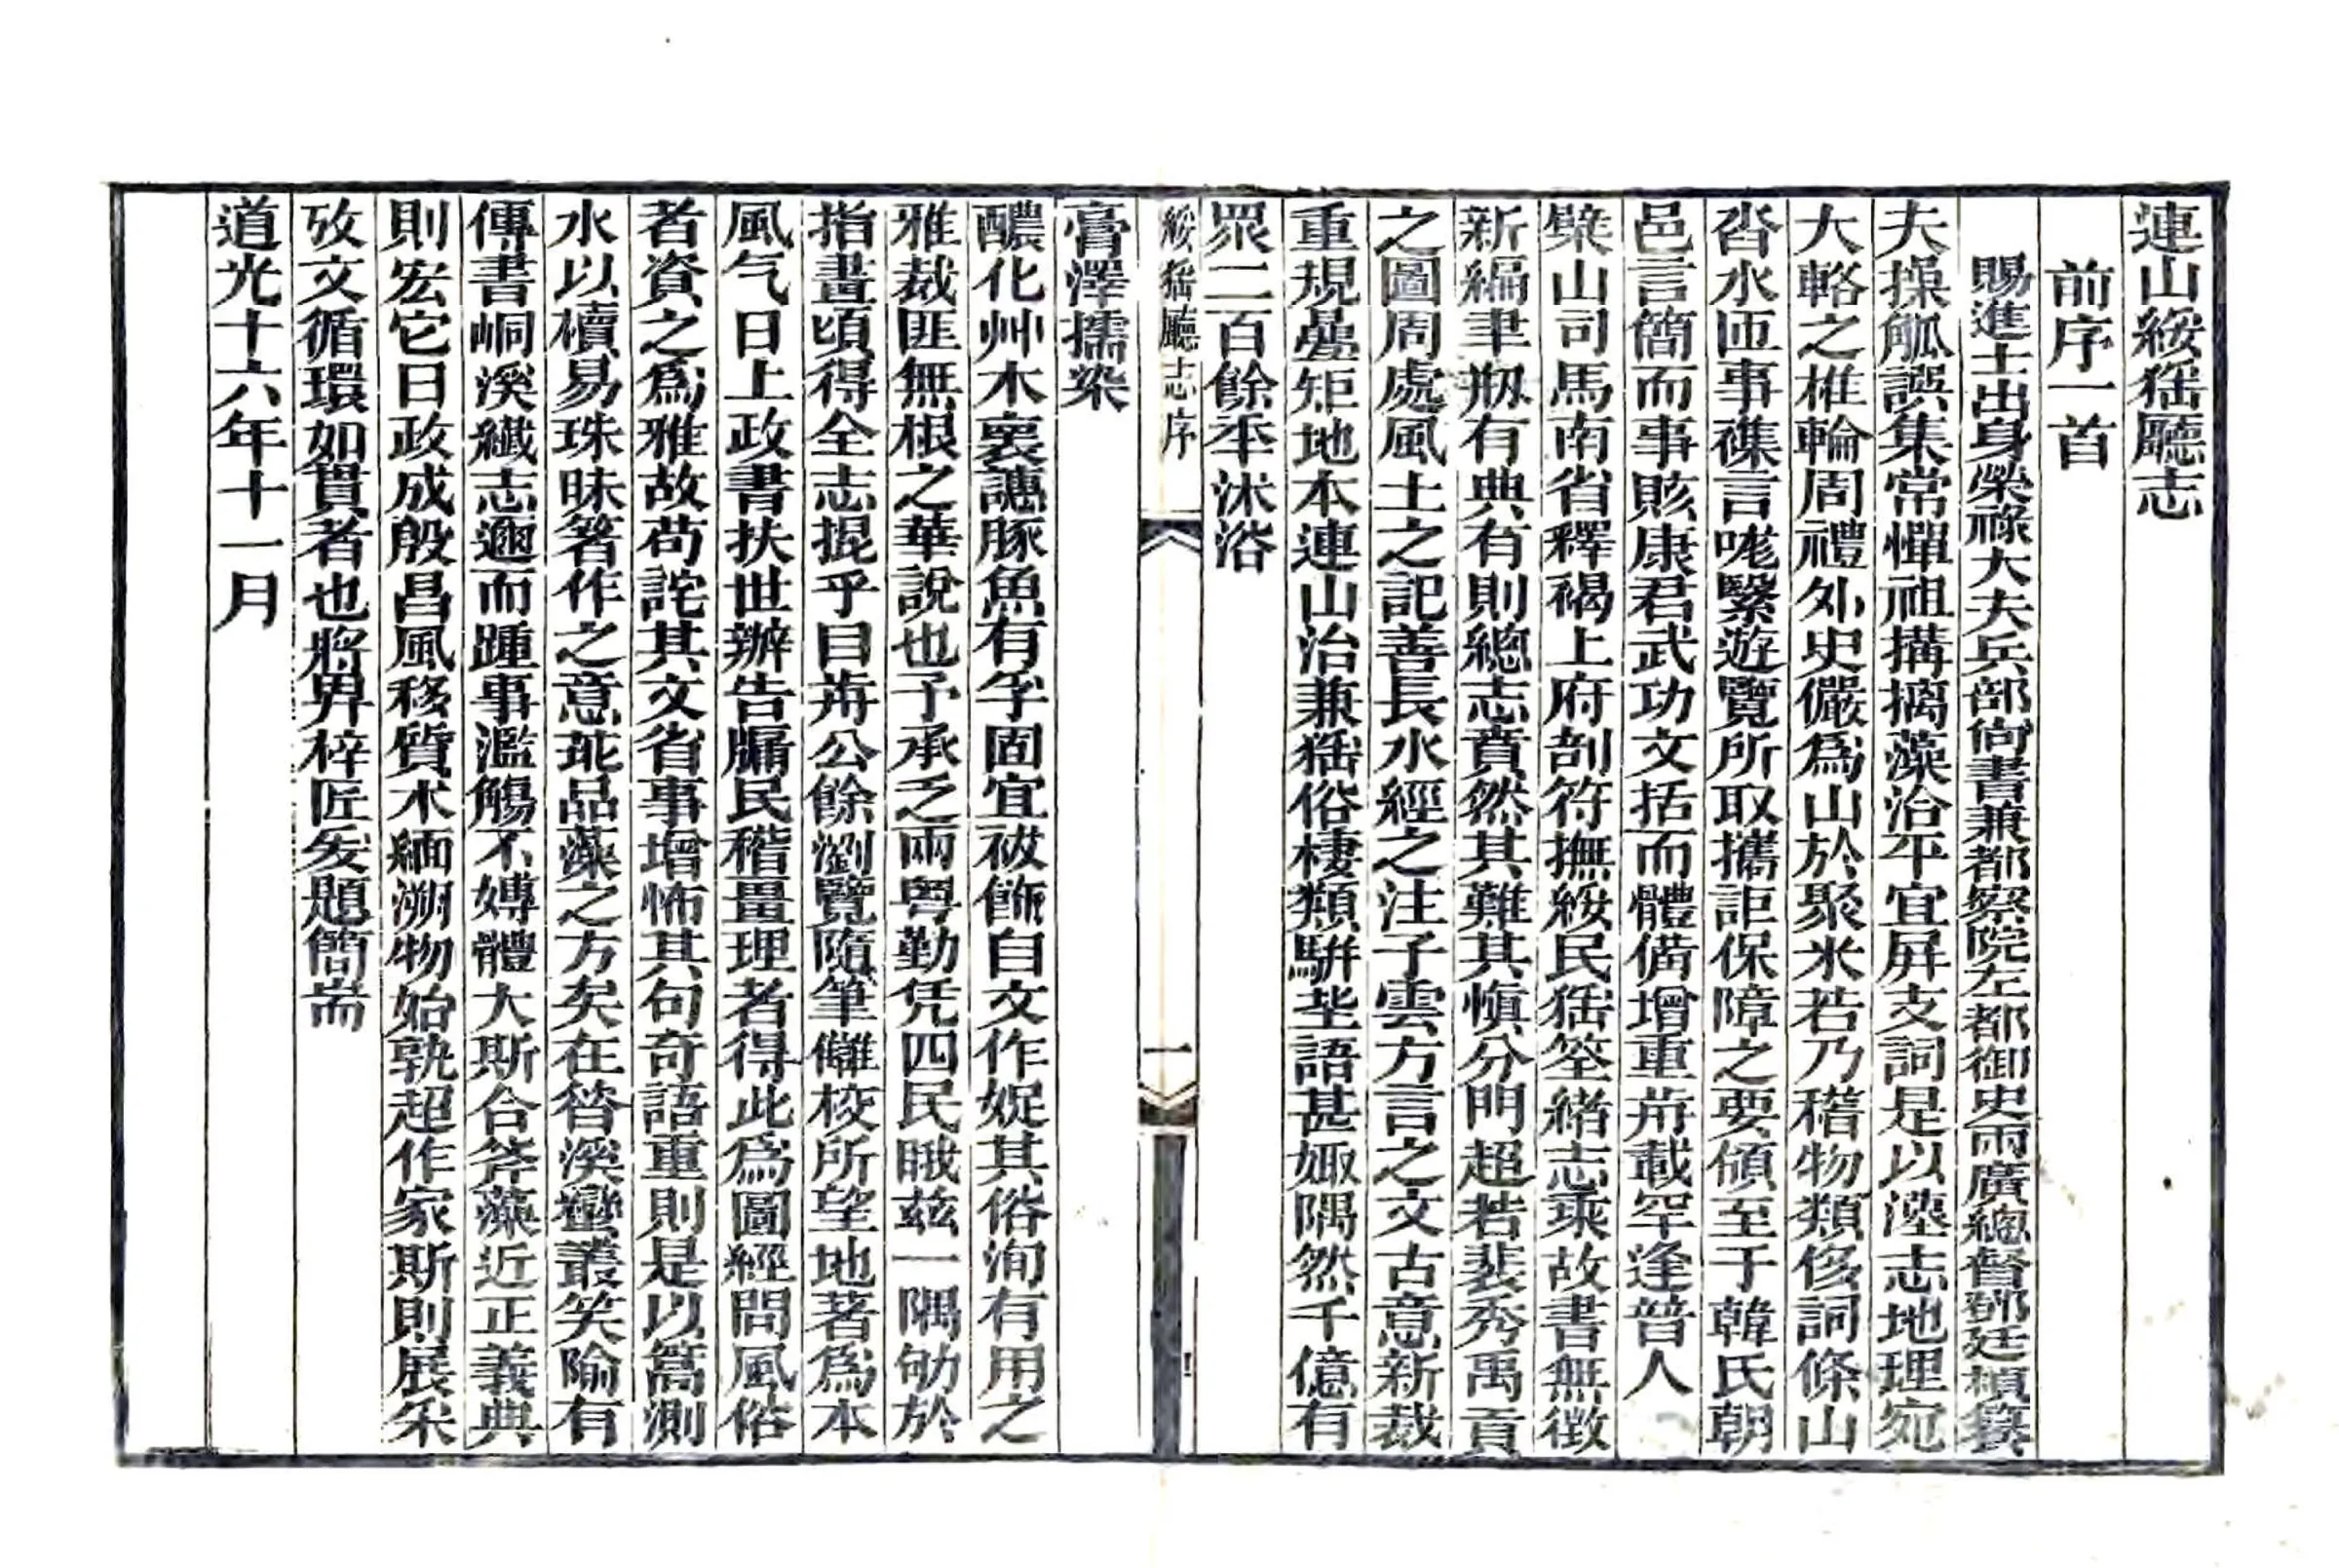 連山綏猺廳志
前序一首
賜進士出身榮祿大夫兵部尙書兼都察院左都御史兩廣總督鄧廷楨篹
夫操觚譔集常憚祖搆摛藻洽平宜屛支詞是以溼志地理宛
大輅之椎輪周禮外史儼爲山於聚米若乃稽物類侅詞條山
沓水匝事襍言咙繄遊覽所取攜詎保障之要傾至于韓氏朝
邑言簡而事賅康君武功文括而體僃增重荊載罕逢晉人
檗山司馬南省釋褐上府剖符撫綏民猺筌緒志乘故書無徵
新編聿剏有典有則總志賁然其難其愼分門超若裴秀禹貢
之圖周處風土之記善長水經之注子雲方言之文古意新裁
重規疊矩地本連山治兼猺俗棲類騈坒語甚娵隅然千億有
眾二百餘秊沐浴
綏猺廳志序
一
膏澤擩染
醲化艸木裏譓豚魚有孚固宜袚飾自文作娖其俗洵有用之
雅裁匪無根之華說也予承乏兩粵勤凭四民睋茲一隅劬於
指畫頃得全志掍乎目歬公餘瀏覽隨筆讎校所望地著爲本
風气日上政書扶世辦告牖民稽畺理者得此爲圖經問風俗
者資之爲雅故苟詫其文省事增怖其句奇語重則是以篙測
水以櫝易珠昧箸作之意乖品藻之方矣在昝溪蠻叢笑隃有
傳書峒溪纖志邇而踵事濫觴不嫥體大斯合斧藻近正義典
則宏它日政成殷昌風移質朮緬溯物始孰超作家斯則展釆
攷文循環如貫者也將畀梓匠爰題簡耑
道光十六年十一月